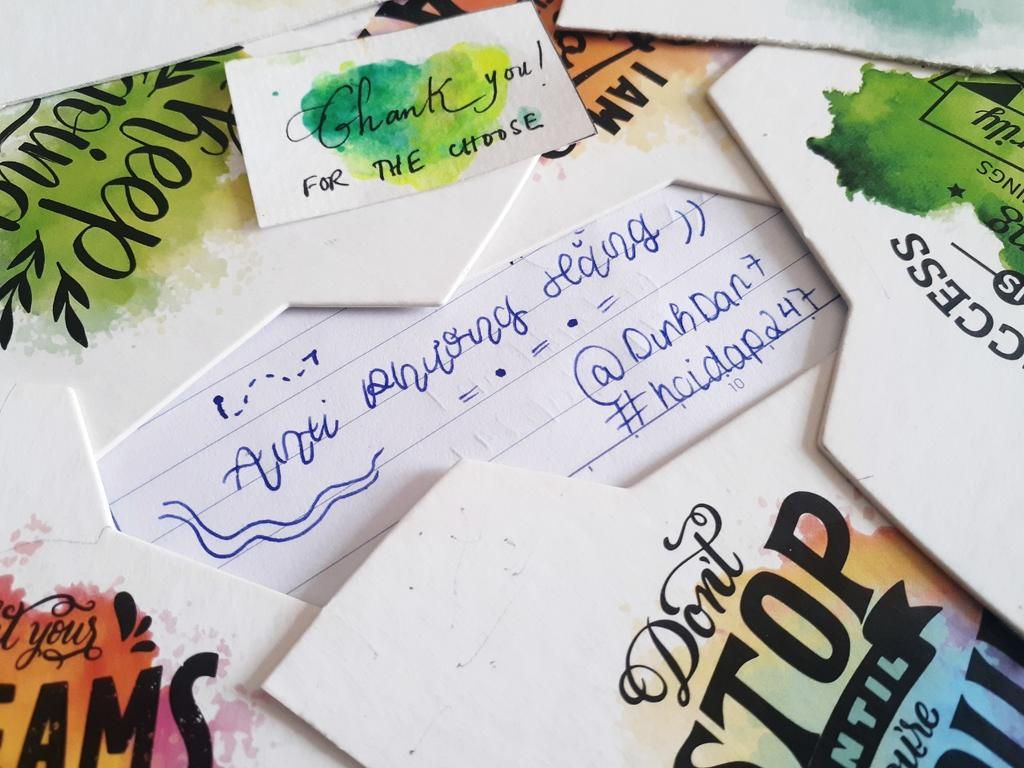 Thank you!
FOR THE CHOOSE
I AM
Keep
CCESS
Anti phương Hằng ))
= • = • =
@DinhDan7
#hoidap247
10
Don't
STOP
NTIL
you're
your
EAMS